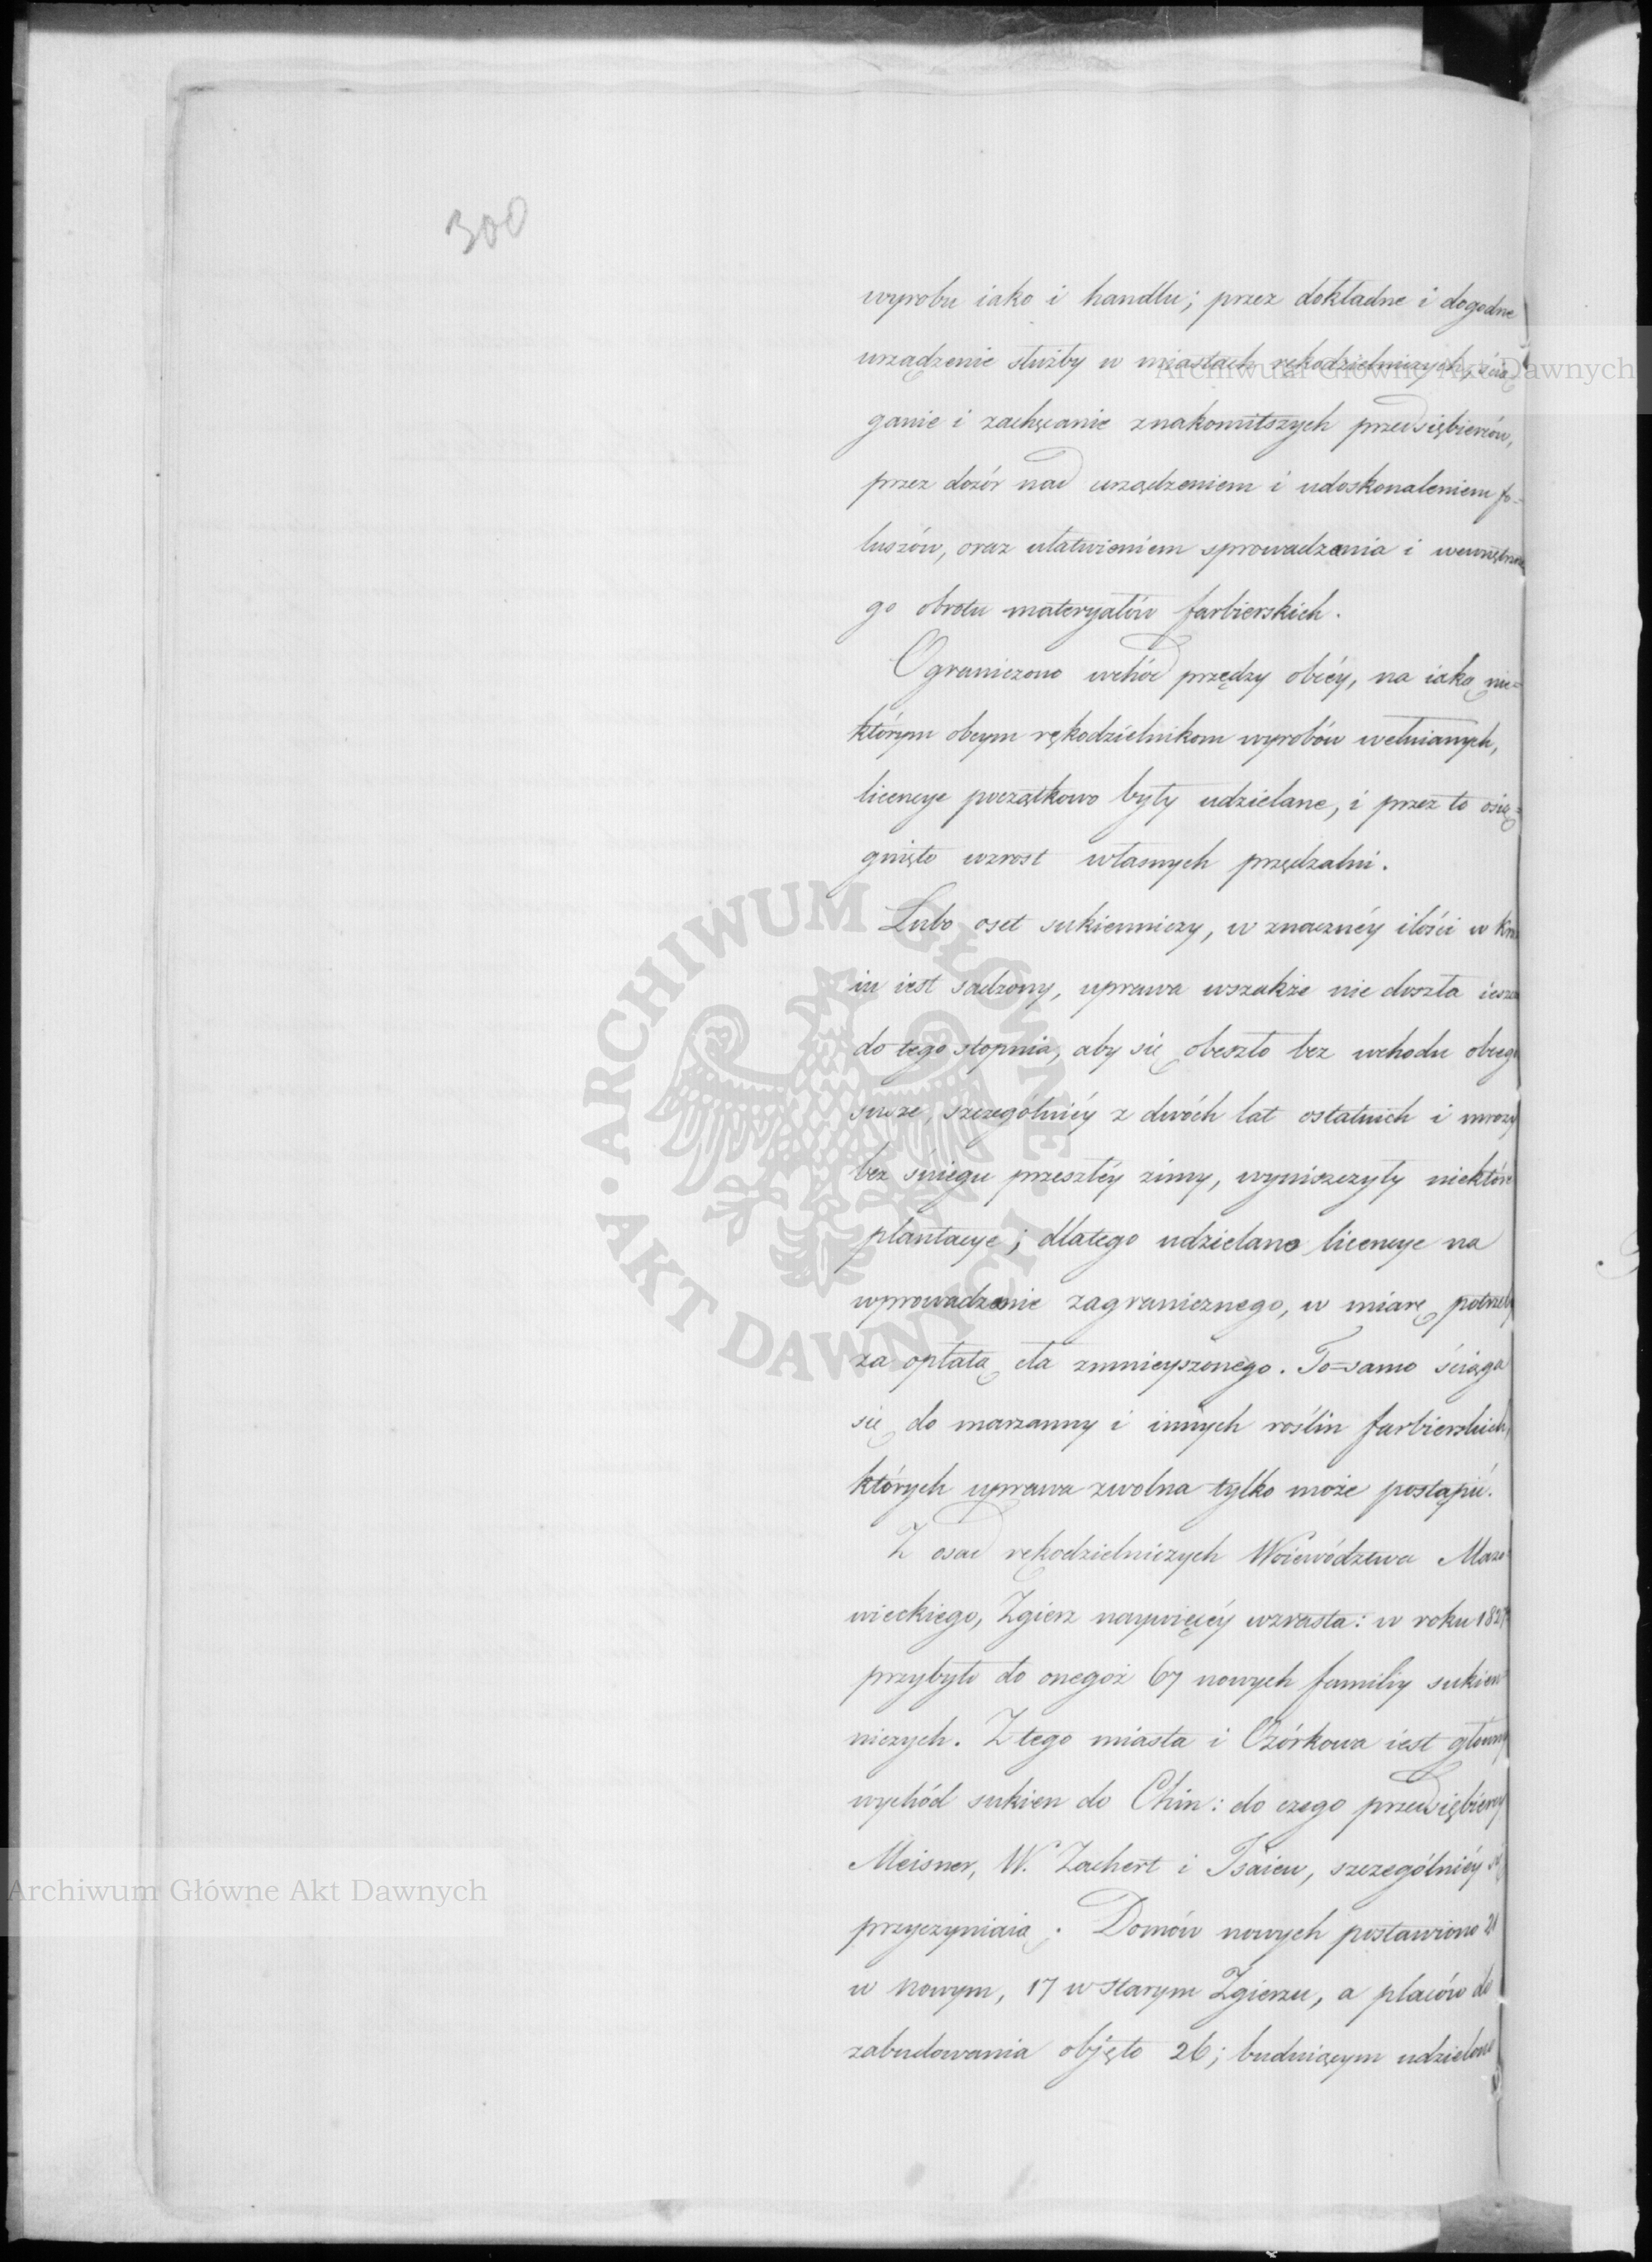 300
wyrobu iako i handlu; przez dokładne i dogodne
urządzenie służby w miastach rękodzielniczych, ścią
ganie i zachęcanie znakomitszych przedsiębierców,
przez dozór nad urządzeniem i udoskonaleniem fo-
luszów, oraz ułatwieniem sprowadzania i wewnętrzne
go obrotu materyałów farbierskich.
Ograniczono wchód przędzy obcéy, na iaką nie=
którym obcym rękodzielnikom wyrobów wełnianych,
licencye początkowo były udzielane, i przez to osią=
gnięto wzrost własnych przędzalni.
Lubo oset sukienniczy, w znacznéy ilości w Kra
iu iest sadzony, uprawa wszakże nie doszła ieszcze
do tego stopnia, aby się obeszło bez wchodu obcego
susze, szczególniéy z dwóch lat ostatnich i mrozy
bez śniegu przeszłéy zimy, wyniszczyły niektóre
plantacye; dlatego udzielano licencye na
wprowadzenie zagranicznego, w miarę potrzeby
za opłatą cła zmnieyszonego. To=samo ściąga
się do marzanny i innych roślin farbierskich,
których uprawa zwolna tylko może postąpić.
Z osad rękodzielniczych Woiewództwa Mazo
wieckiego, Zgierz naywięcéy wzrasta: w roku 1827
przybyło do onegoż 67 nowych familiy sukien
niczych. Z tego miasta i Ozórkowa iest główny
wychód sukien do Chin: do czego przedsiębiercy
Meisner, W. Zachert i Isaiew, szczególniéy się
przyczyniaią. Domów nowych postawiono 21
w nowym, 17 w starym Zgierzu, a placów do
zabudowania objęto 26; buduiącym udzielono
Archiwum Główne Akt Dawnych
Archiwum Główne Akt Dawnych
ARCHIWUM GŁÓWNE
AKT DAWNYCH